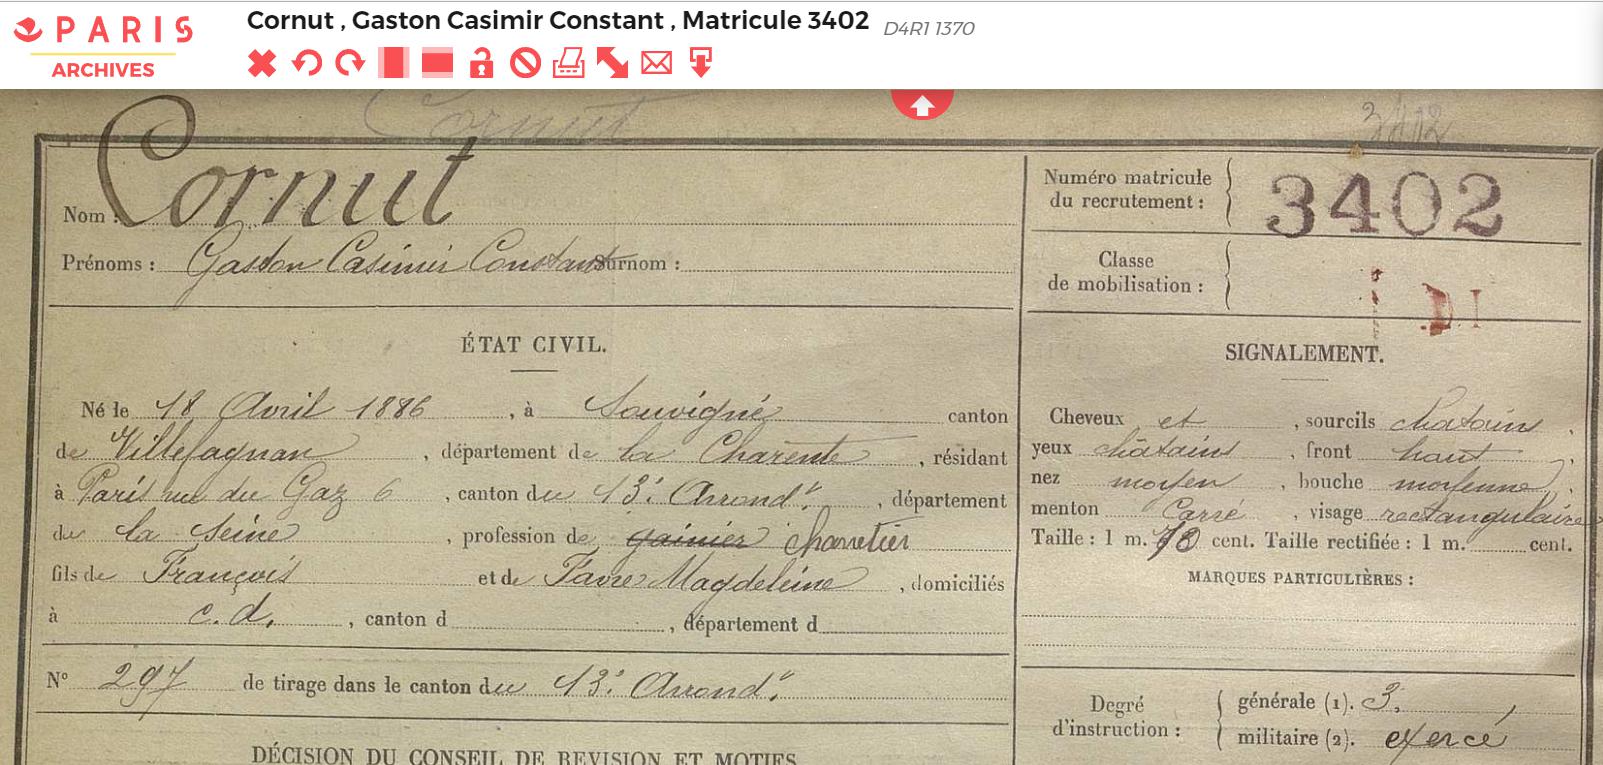 PARIS
ARCHIVES
Cornut , Gaston Casimir Constant , Matricule 3402 D4R1 1370
Cornut
3402
Nom : Cornut
Prénoms : Gaston Casimir Constant Surnom :
Numéro matricule du recrutement : 3402
Classe de mobilisation :
ÉTAT CIVIL.
Né le 18 Avril 1886 , à Souvigné canton
de Villefagnan , département de la Charente , résidant
à Paris rue du Gaz 6 , canton du 13e Arrondt , département
de la Seine , profession de gainier charretier
fils de François et de Favre Magdeleine , domiciliés
à c. d. , canton d , département d
No 297 de tirage dans le canton du 13e Arrondt
DÉCISION DU CONSEIL DE REVISION ET MOTIFS
SIGNALEMENT.
Cheveux et , sourcils chatains ,
yeux châtains , front haut ,
nez moyen , bouche moyenne ,
menton Carré , visage rectangulaire
Taille : 1 m. 70 cent. Taille rectifiée : 1 m. cent.
MARQUES PARTICULIÈRES :
Degré d'instruction :
générale (1). 3,
militaire (2). exercé